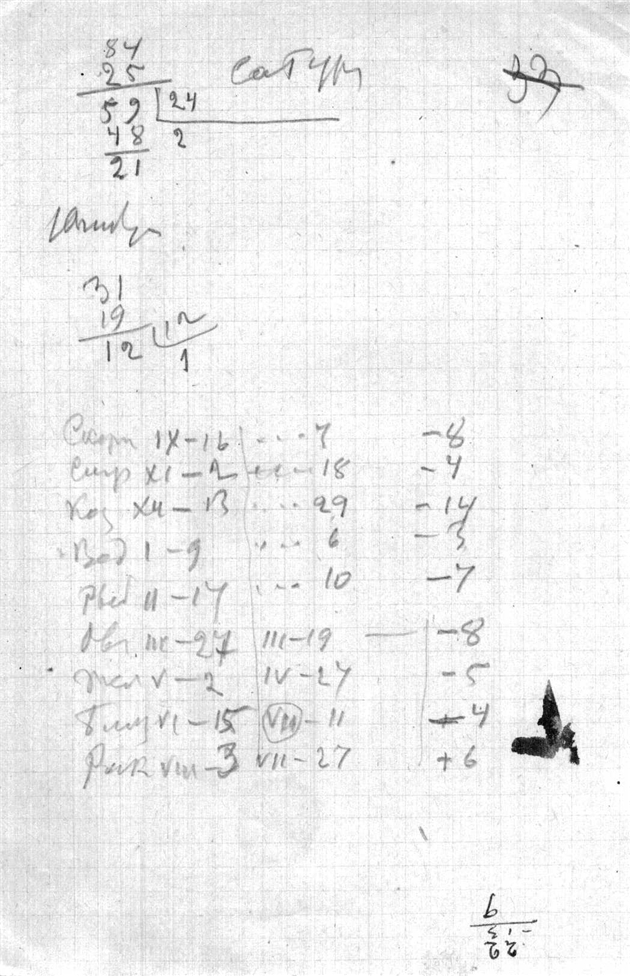 84
25 Сатурн 33
59 24
48 2
21
31
19 12
12 1
Скорп IX-16 .... 7 -8
Стр XI-2 .... 18 -4
Коз XII-13 .... 29 -14
Вод I-9 .... 6 -3
Рыб II-17 .... 10 -7
Овн III-27 III-19 — -8
Тел V-2 IV-27 -5
Близ VI-15 VII-11 +4
Рак VIII-3 VII-27 +6
22
13
9